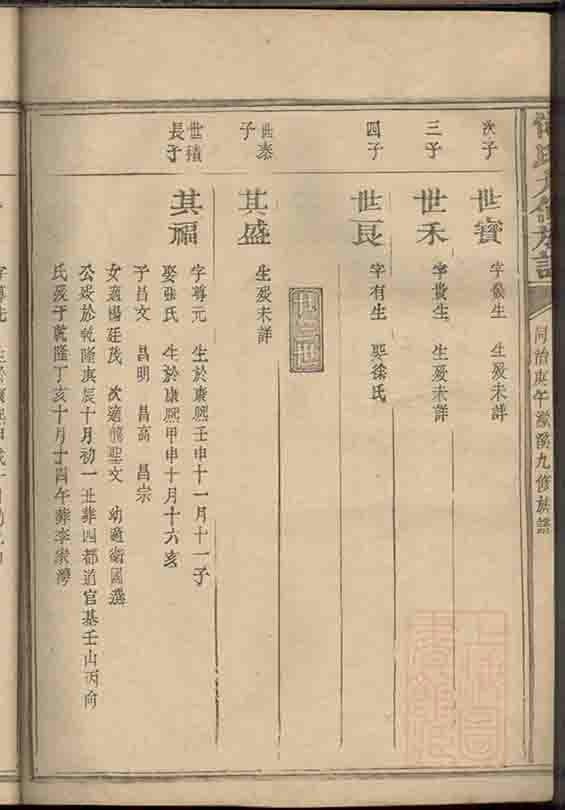 同治庚午 溪九修族譜
次子
世寶
字發生 生歿未詳
三子
世禾
字貴生 生歿未詳
四子
世良
字有生 娶徐氏
廿三世
世泰
子
其盛
生歿未詳
世積
長子
其福
字尊元 生於康熙壬申十一月十一子
娶張氏 生於康熙甲申十月十六亥
子昌文 昌明 昌高 昌宗
女適楊廷茂 次適熊聖文 幼適衛國選
公歿於乾隆庚辰十月初一丑葬四都道官基壬山丙向
氏歿于乾隆丁亥十月十四午葬李家灣